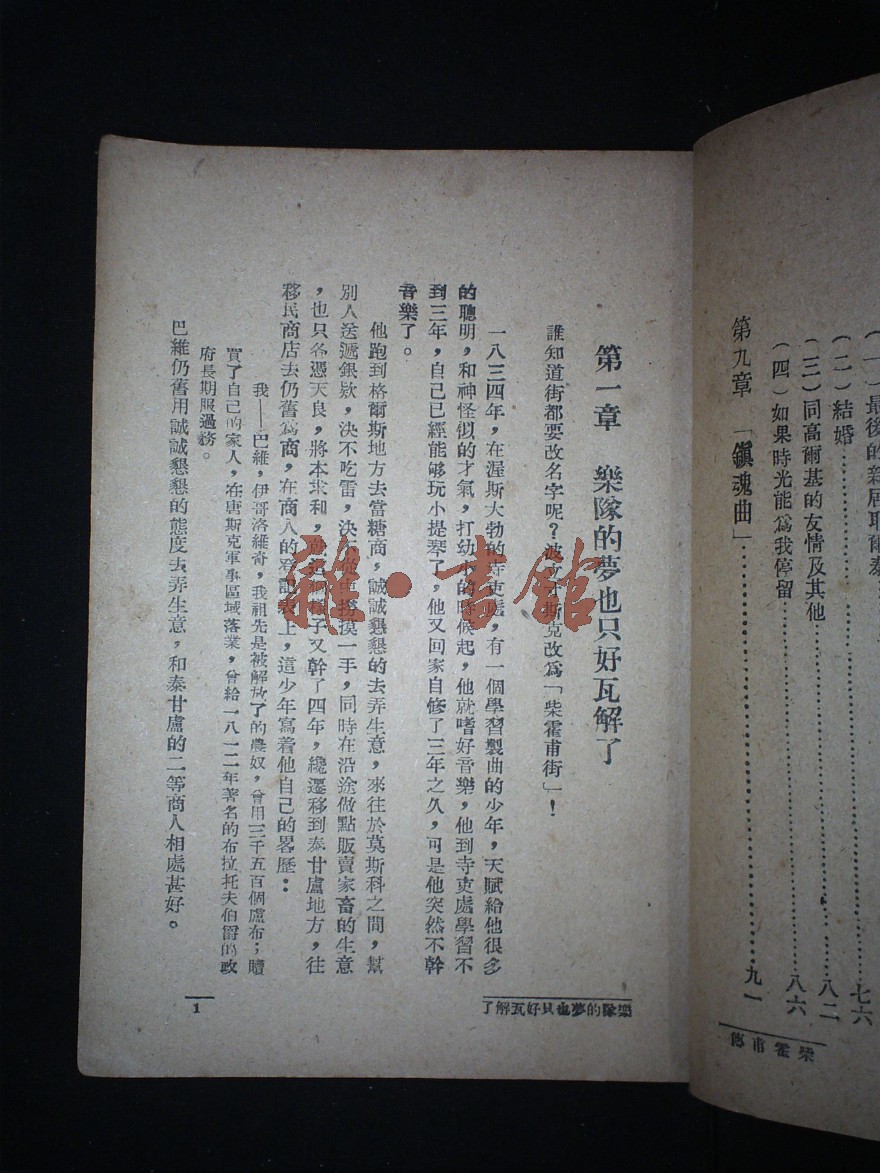 (一)最後的新居耶爾泰
(二)結婚……七六
(三)同高爾基的友情及其他……八二
(四)如果時光能爲我停留……八六
第九章 「鎭魂曲」……九一
柴霍甫傳
第一章 樂隊的夢也只好瓦解了
誰知道街都要改名字呢？波 斯克改爲「柴霍甫街」！
一八三四年，在渥斯大勃的寺吏處，有一個學習製曲的少年，天賦給他很多
的聰明，和神怪似的才氣，打幼小的時候起，他就嗜好音樂，他到寺吏處學習不
到三年，自己已經能够玩小提琴了，他又回家自修了三年之久，可是他突然不幹
音樂了。
他跑到格爾斯地方去當糖商，誠誠懇懇的去弄生意，來往於莫斯科之間，幫
別人送遞銀欵，決不吃雷，決不 摸一手，同時在沿途做點販賣家畜的生意
，也只各憑天良，將本求和， 樣子又幹了四年，纔遷移到泰甘盧地方，往
移民商店去仍舊爲商，在商人的登記表上，這少年寫着他自己的畧歷：
我—巴維，伊哥洛維奇，我祖先是被解放了的農奴，曾用三千五百個盧布；贖
買了自己的家人，在唐斯克軍事區域落業，曾給一八一二年著名的布拉托夫伯爵的政
府長期服過務。
巴維仍舊用誠誠懇懇的態度去弄生意，和泰甘盧的二等商人相處甚好。
樂隊的夢也只好瓦解了
1
雜·書館